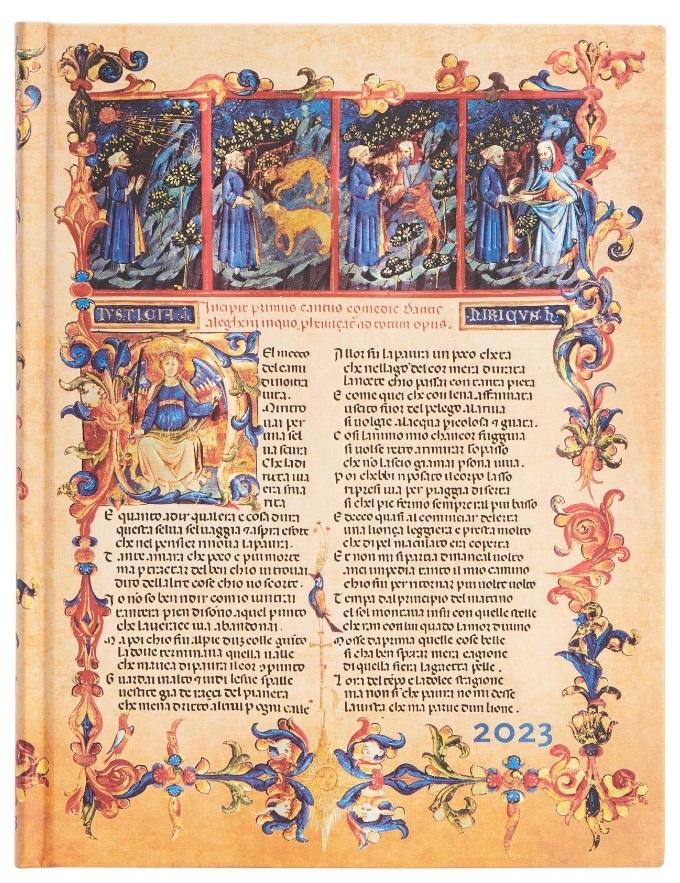 IVSTICIA.
Incipit primus cantus comedie Dantis
alegherii inquo plemiçat ad totum opus.
El meçço
del cami
di nostra
uita.
Mi ritro
uai per
una sel
ua scura
Che la di
ritta uia
era sma
rita
E quanto a dir qual era e cosa dura
questa selua seluaggia & aspra e forte
che nel pensier rinoua la paura.
T ant e amara che poco e piu morte
ma per tractar del ben ch io ui trouai
diro dell altre cose ch io uo scorte.
I o no so ben ridir como io u intrai
tant era pien di sono a quel puncto
che la uerace uia abandonai.
M a poi ch io fui al pie
la doue terminaua quella ualle
che m auea di paura il cor
G uardai in alto & uidi le sue spalle
uestite gia de raggi del pianeta
che mena dritto altrui p ogni calle
A llor fu la paura un poco cheta
che nel lago del cor m era durata
la nocte ch io passai con tanta pieta
E come quei che con lena affannata
uscito fuor del pelego a la riua
si uolgie a l acqua & guata.
C osi l animo mio ch ancor fuggiua
si uolse retro a rimirar lo passo
che no lascio gia mai psona uiua.
P oi ch ebbi riposato il corpo lasso
ripresi uia per piaggia diserta
si che l pie fermo sempre era l piu basso
E t ecco quasi al cominciar de l erta
una lionça leggiera e presta molto
che di pel maculato era coperta
E t non mi si partia dinançi al uolto
anci impedia tanto il mio camino
ch io fui per ritornar piu uolte uolto
T emp era dal principio del matino
el sol montaua in su con quelle stelle
ch eran con lui quado l amor diuino
M osse da prima quelle cose belle
si ch a ben sperar m era cagione
di quella fiera la gaetta pelle.
L ora del tepo e la dolce stagione
ma non si che paura no mi desse
la uista che m aparue d un lione.
2023